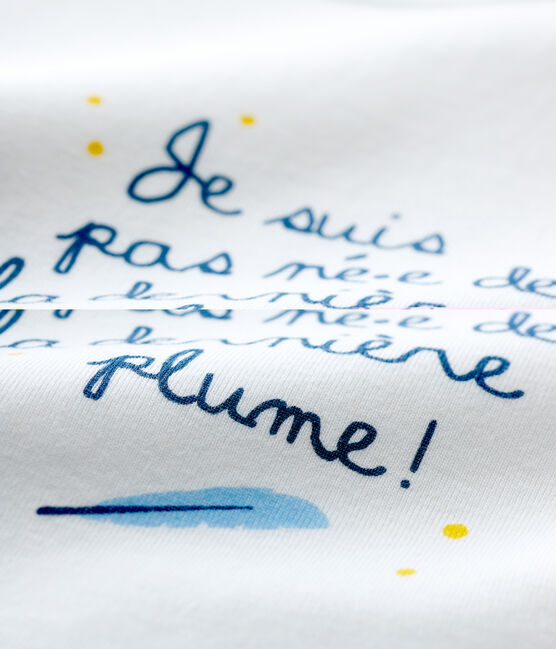 Je suis
pas né·e de
la dernière
plume !